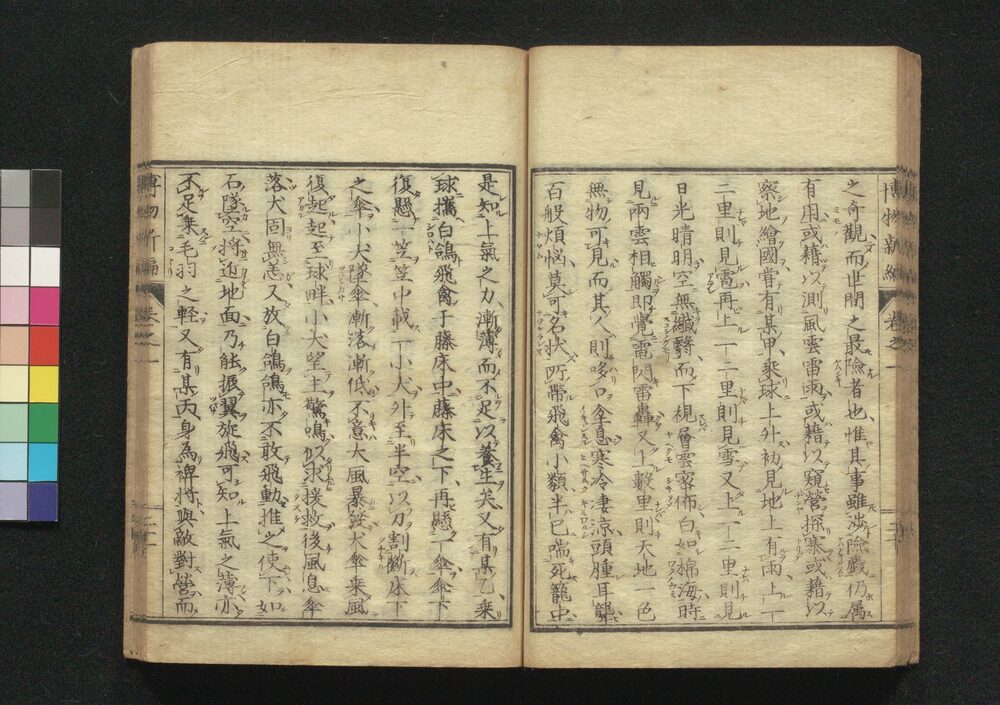 博物新編 卷之一
之奇觀而世間之最險者也、惟其事雖涉險戲仍屬
有用或藉以測風雲雷雨或藉以窺營探寨或藉以
察地繪國嘗有某甲乘球上升初見地上有雨上一
二里則見雹再上一二里則見雪又上一二里則見
日光晴明空無纖翳而下視層雲密佈白如棉海時
見兩雲相觸即覺電閃雷轟又上數里則天地一色
無物可見而其人則哆口拿息寒冷凄涼頭腫耳聾
百般煩悩莫可名狀所帶飛禽小類半已喘死籠中
是知上氣之力漸薄而不足以養生矣又有某乙乘
球攜白鴿飛禽于藤床中藤床之下再懸一傘傘下
復懸一笠笠中載一小犬升至半空以刀割斷床下
之傘小犬墜傘漸落漸低不意大風暴發犬傘乘風
復起起至球畔小犬望主驚鳴似求援救後風息傘
落犬固無恙又放白鴿鴿亦不敢飛動推之使下如
石墜空將近地面乃能振翼旋飛可知上氣之薄亦
不足乘毛羽之輕又有某丙身為裨將與敵對營而
博物新編 卷之一